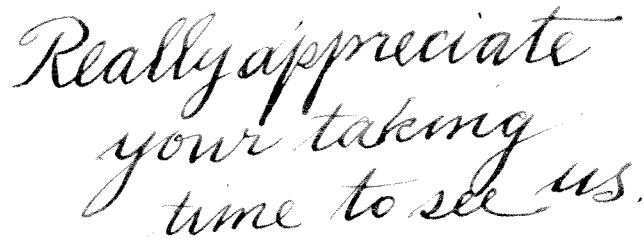 Really appreciate
your taking
time to see us.